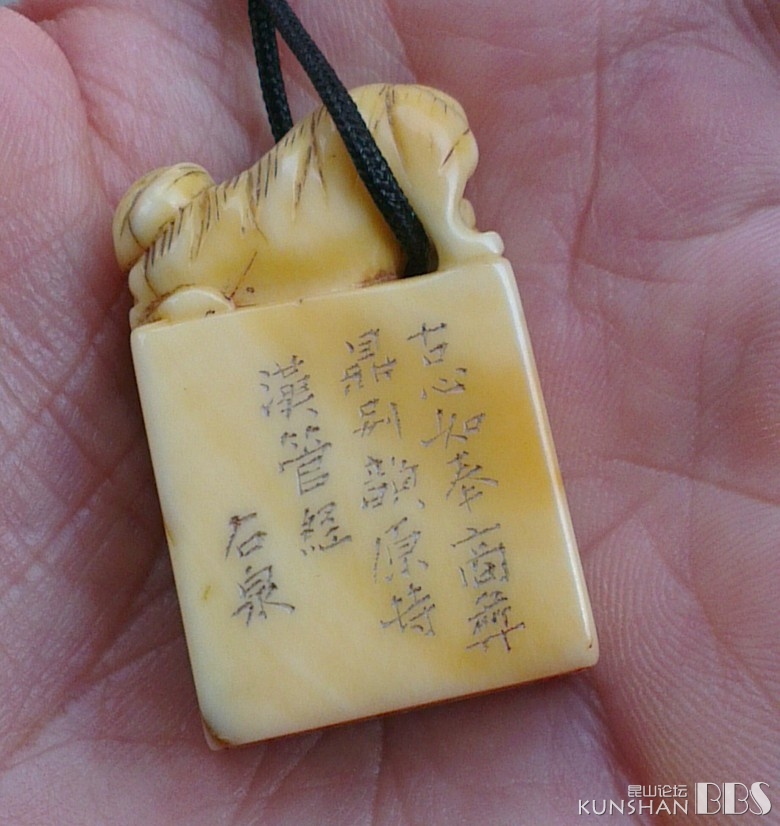 古心如奉商彝
鼎别韻原持
漢管經
石泉
昆山论坛
KUNSHAN BBS